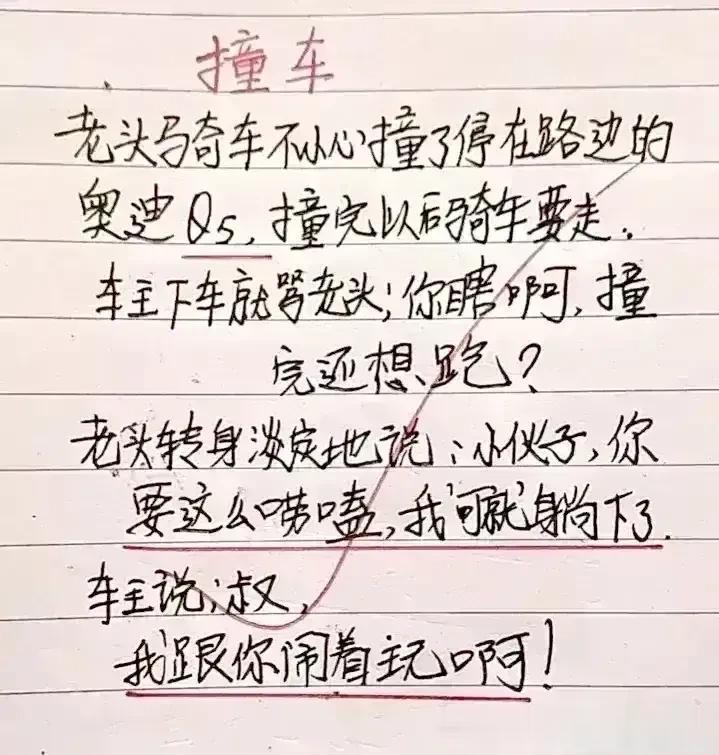 撞车
老头骑车不小心撞了停在路边的
奥迪Q5，撞完以后骑车要走.
车主下车就骂老头;你瞎啊,撞
完还想跑?
老头转身淡定地说;小伙子,你
要这么唠嗑,我可就躺下了.
车主说;叔,
我跟你闹着玩啊!